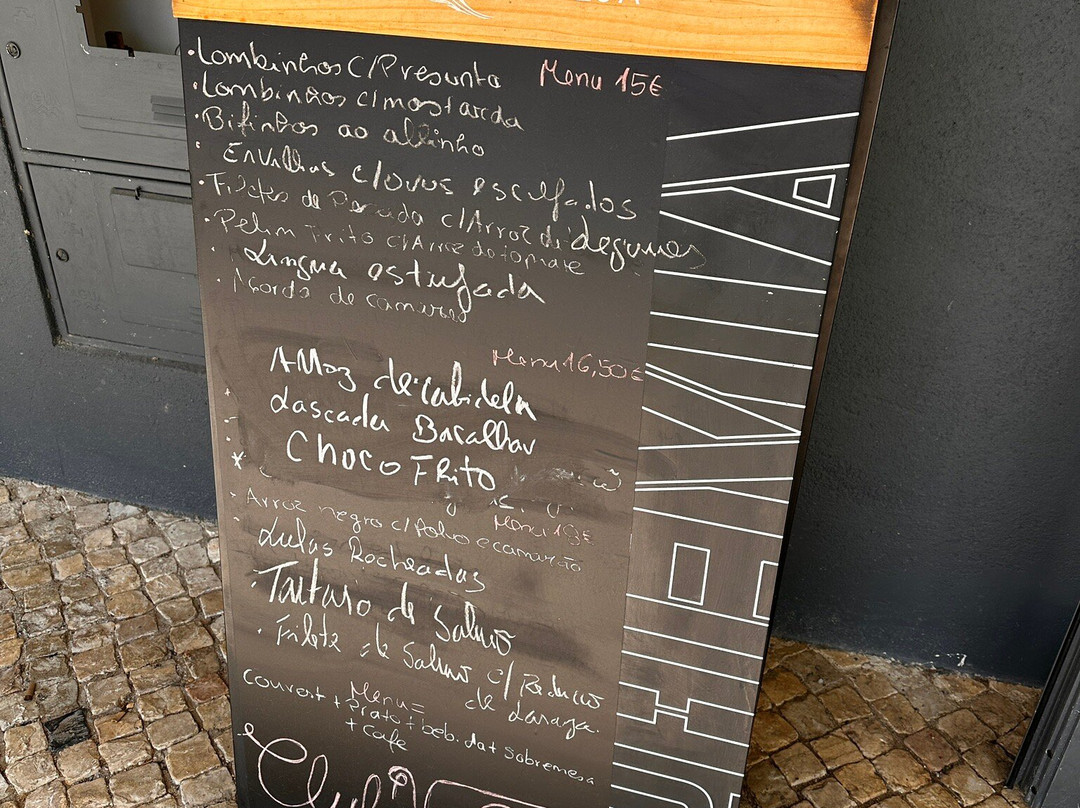 ·Lombinhos c/Presunto
Menu 15€
·Lombinhos c/mostarda
·Bifinhos ao alhinho
· Ervilhas c/ovos escalfados
·Filetes de Pescada c/Arroz de legumes
·Pelim Frito c/Arroz de tomate
· Lingua estufada
· Açorda de camarão
Menu 16,50€
Arroz de cabidela
Lascada Bacalhau
Choco Frito
Menu 18€
· Arroz negro c/Polvo e camarão
· Lulas Recheadas
· Tartaro de Salmão
· Filete de Salmão c/Redução
de Laranja.
Menu=
couvert + Prato + bebida + sobremesa
+ café